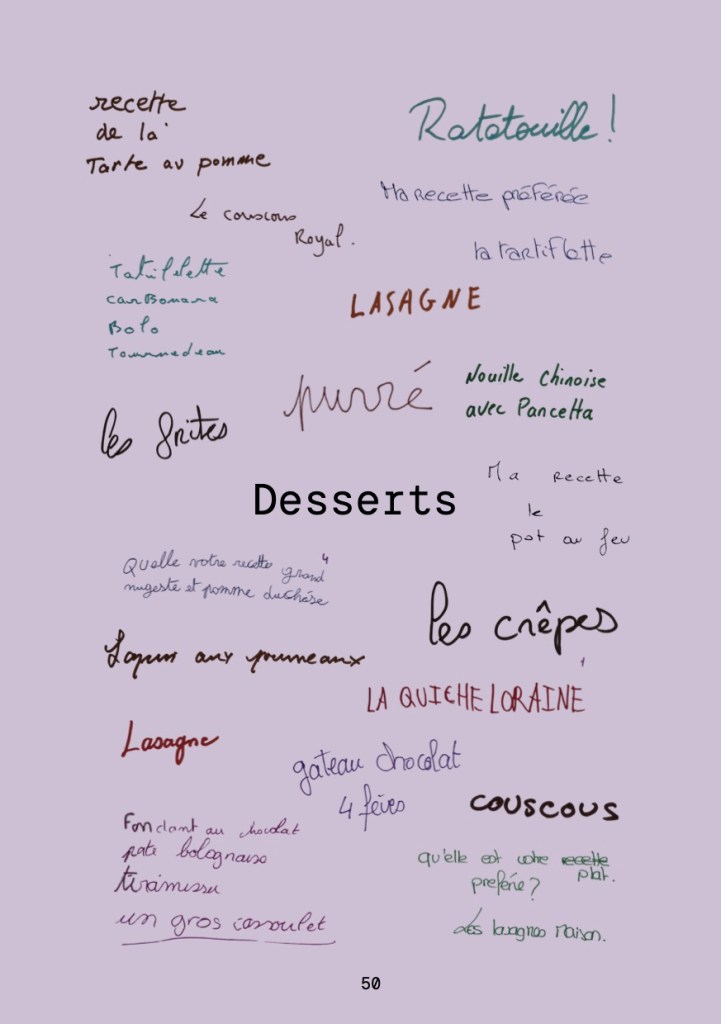 recette
de la
Tarte au pomme
Ratatouille !
Ma recette préférée
la tartiflette
Le couscous
Royal.
CarBonara
Bolo
LASAGNE
purré
Nouille Chinoise
avec Pancetta
les frites
Desserts
Ma recette
le
pot au feu
Quelle votre recette grand
nugeste et pomme duchése
les crêpes
Lapin aux pruneaux
LA QUICHE LORAINE
Lasagne
gateau chocolat
4 féves
couscous
Fondant au chocolat
pate bolognaise
tiramissu
un gros cassoulet
qu'elle est votre recette
plat.
preferie ?
Les lasagnes maison.
50